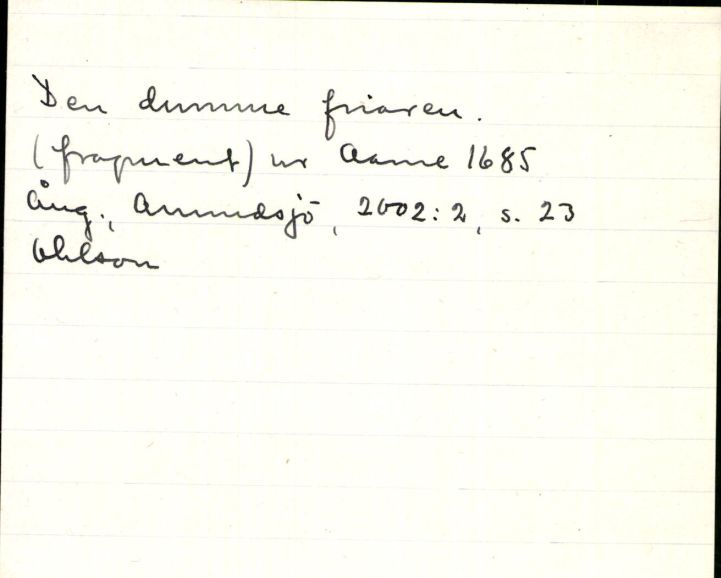 Den dumme friaren.
(fragment) nr Aarne 1685
Ång., Anundsjö, 2002:2, s. 23
Ohlson